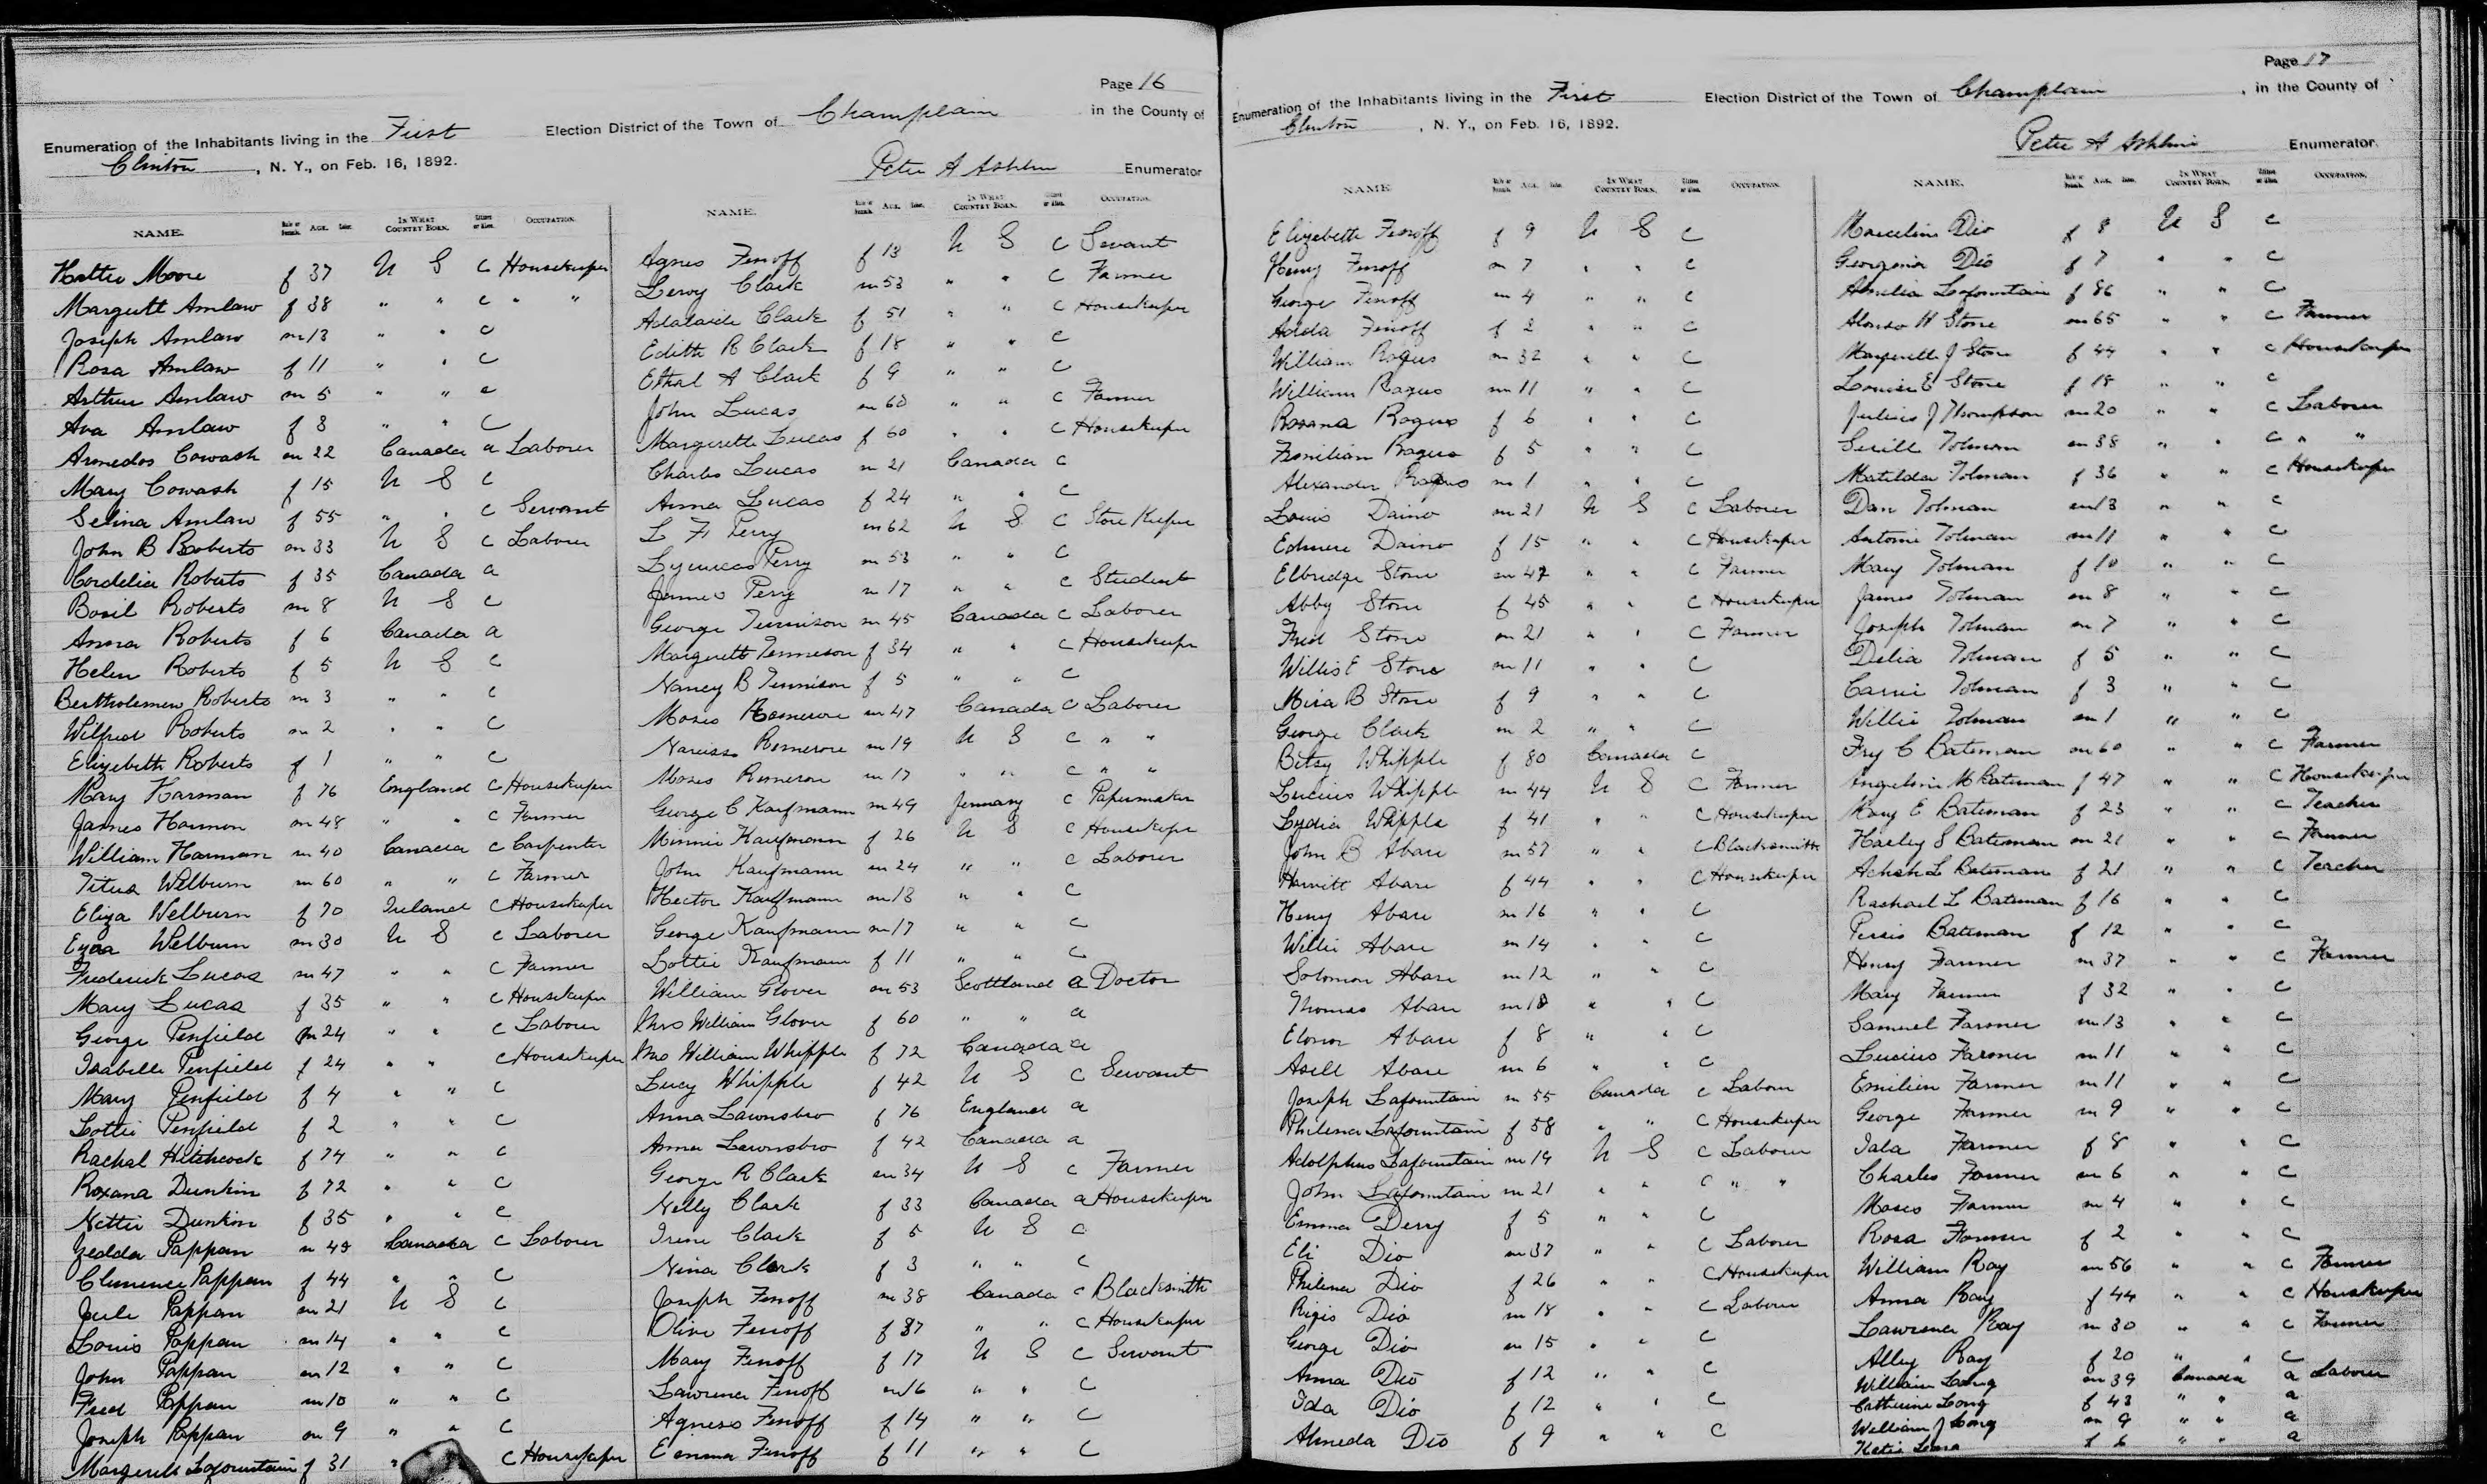 Page 16
Enumeration of the Inhabitants living in the First Election District of the Town of Champlain in the County of
Clinton, N. Y., on Feb. 16, 1892.
Peter A Ashline Enumerator
NAME. AGE. IN WHAT COUNTRY BORN. OCCUPATION.
Hattie Moore f 37 U S C Housekeeper
Margrett Amlaw f 38 " " C " "
Joseph Amlaw m 13 " " C
Rosa Amlaw f 11 " " C
Arthur Amlaw m 5 " " C
Ava Amlaw f 3 " " C
Armedos Cowash m 22 Canada a Laborer
Mary Cowash f 15 U S C
Selina Amlaw f 55 " " C Servant
John B Roberts m 33 U S C Laborer
Cordelia Roberts f 35 Canada a
Basil Roberts m 8 U S C
Anna Roberts f 6 Canada a
Helen Roberts f 5 U S C
Bertholemew Roberts m 3 " " C
Wilfred Roberts m 2 " " C
Elizebeth Roberts f 1 " " C
Mary Harman f 76 England C Housekeeper
James Harmon m 48 " " C Farmer
William Harman m 40 Canada C Carpenter
Titus Welburn m 60 " " C Farmer
Eliza Welburn f 70 Ireland C Housekeeper
Ezra Welburn m 30 U S C Laborer
Frederick Lucas m 47 " " C Farmer
Mary Lucas f 35 " " C Housekeeper
George Penfield m 24 " " C Laborer
Isabelle Penfield f 24 " " C Housekeeper
Mary Penfield f 4 " " C
Lottie Penfield f 2 " " C
Rachal Hitchcock f 74 " " C
Roxana Dunkin f 72 " " C
Nettie Dunkin f 35 " " C
Zedda Pappan m 49 Canada C Laborer
Clemence Pappan f 44 " " C
Jule Pappan m 21 U S C
Louis Pappan m 14 " " C
John Pappan m 12 " " C
Fred Pappan m 10 " " C
Joseph Pappan m 9 " " C
Margerett Lafountain f 31 " C Housekeeper
NAME. AGE. IN WHAT COUNTRY BORN. OCCUPATION.
Agnes Fenoff f 13 U S C Servant
Leroy Clark m 53 " " C Farmer
Adalaide Clark f 51 " " C Housekeeper
Edith R Clark f 18 " " C
Ethal A Clark f 9 " " C
John Lucas m 60 " " C Farmer
Margerette Lucas f 60 " " C Housekeeper
Charles Lucas m 21 Canada C
Anna Lucas f 24 " " C
L F Perry m 62 U S C Store Keeper
Perry m 53 " " C
James Perry m 17 " " C Student
George Tennison m 45 Canada C Laborer
Margrett Tennison f 34 " " C Housekeeper
Nancy B Tennison f 5 " " C
Moses Romerow m 47 Canada C Laborer
Narciss Romerow m 19 U S C " "
Moses Romerow m 17 " " C " "
George C Kaufmann m 49 Jermany C Papermaker
Minnie Kaufmann f 26 U S C Housekeeper
John Kaufmann m 24 " " C Laborer
Hector Kauffmann m 13 " " C
George Kaufmann m 17 " " C
Lottie Kaufmann f 11 " " C
William Glover m 53 Scottland a Doctor
Mrs William Glover f 60 " " a
Mrs William Whipple f 72 Canada a
Lucy Whipple f 42 U S C Servant
Anna Lawnsbro f 76 England a
Anna Lawnsbro f 42 Canada a
George R Clark m 34 U S C Farmer
Nelly Clark f 33 Canada a Housekeeper
Irene Clark f 5 U S C
Nina Clark f 3 " " C
Joseph Fenoff m 38 Canada C Blacksmith
Olive Fenoff f 37 " " C Housekeeper
Mary Fenoff f 17 U S C Servant
Lawrence Fenoff m 16 " " C
Agness Fenoff f 14 " " C
Emma Fenoff f 11 " " C
Page 17
Enumeration of the Inhabitants living in the First Election District of the Town of Champlain, in the County of
Clinton, N. Y., on Feb. 16, 1892.
Peter A Ashline Enumerator.
NAME AGE. IN WHAT COUNTRY BORN. OCCUPATION.
Elizebeth Fenoff f 9 U S C
Henry Fenoff m 7 " " C
George Fenoff m 4 " " C
Adda Fenoff f 2 " " C
William Rogus m 32 " " C
William Ragus m 11 " " C
Roxana Rogus f 6 " " C
Ragus f 5 " " C
Alexander Rogus m 1 " " C
Louis Daino m 21 U S C Laborer
Edmere Daino f 15 " " C Housekeeper
Elbridge Stone m 47 " " C Farmer
Abby Stone f 45 " " C Housekeeper
Fred Stone m 21 " " C Farmer
Willis E Stone m 11 " " C
Mira B Stone f 9 " " C
George Clark m 2 " " C
Betsy Whipple f 80 Canada C
Lucius Whipple m 44 U S C Farmer
Lydia Whipple f 41 " " C Housekeeper
John B Abare m 57 " " C Blacksmith
Harriett Abare f 44 " " C Housekeeper
Henry Abare m 16 " " C
Willie Abare m 14 " " C
Solomon Abare m 12 " " C
Thomas Abare m 10 " " C
Elonor Abare f 8 " " C
Asell Abare m 6 " " C
Joseph Lafountain m 55 Canada C Laborer
Philena Lafountain f 58 " " C Housekeeper
Adolphus Lafountain m 19 U S C Laborer
John Lafountain m 21 " " C " "
Emma Derry f 5 " " C
Eli Dio m 37 " " C Laborer
Philena Dio f 26 " " C Housekeeper
Rigis Dio m 18 " " C Laborer
George Dio m 15 " " C
Anna Dio f 12 " " C
Ida Dio f 12 " " C
Almeda Dio f 9 " " C
NAME. AGE. IN WHAT COUNTRY BORN. OCCUPATION.
Marceline Dio f 8 U S C
Georgenia Dio f 7 " " C
Amelia Lafountain f 86 " " C
Alonso H Stone m 65 " " C Farmer
Margerette J Stone f 44 " " C Housekeeper
Louise E Stone f 18 " " C
Julius J Thompson m 20 " " C Laborer
Serill Tolman m 38 " " C " "
Matilda Tolman f 36 " " C Housekeeper
Dan Tolman m 13 " " C
Antoine Tolman m 11 " " C
Mary Tolman f 10 " " C
James Tolman m 8 " " C
Joseph Tolman m 7 " " C
Delia Tolman f 5 " " C
Carrie Tolman f 3 " " C
Willie Tolman m 1 " " C
Fry C Bateman m 60 " " C Farmer
Angeline M Bateman f 47 " " C Housekeeper
Mary E Bateman f 23 " " C Teacher
Harley S Bateman m 21 " " C Farmer
Achsh L Bateman f 21 " " C Teacher
Rachael L Bateman f 16 " " C
Persis Bateman f 12 " " C
Henry Farmer m 37 " " C Farmer
Mary Farmer f 32 " " C
Samuel Farmer m 13 " " C
Lucius Farmer m 11 " " C
Emilien Farmer m 11 " " C
George Farmer m 9 " " C
Iala Farmer f 8 " " C
Charles Farmer m 6 " " C
Moses Farmer m 4 " " C
Rosa Farmer f 2 " " C
William Ray m 56 " " C Farmer
Anna Ray f 44 " " C Housekeeper
Lawrence Ray m 30 " " C Farmer
Alley Ray f 20 " " C
William Long m 39 Canada a Laborer
Catherine Long f 43 " " a
William J Long m 9 " " a
Katie f 6 " " a